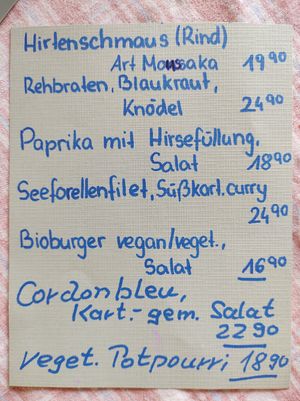 Hirtenschmaus (Rind)
Art Moussaka 19 90
Rehbraten, Blaukraut,
Knödel 24 90
Paprika mit Hirsefüllung,
Salat 18 90
Seeforellenfilet, Süßkart.curry
24 90
Bioburger vegan/veget.,
Salat 16 90
Cordonbleu,
Kart.- gem. Salat
22 90
Veget. Potpourri 18 90